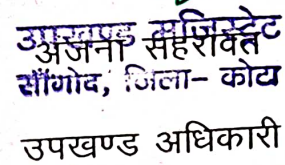 उपखण्ड मजिस्ट्रेट
अंजना सहरावत
सांगोद, जिला- कोटा
उपखण्ड अधिकारी